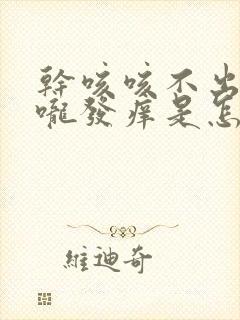 幹咳咳不出
嚨發痒是怎
維迪奇